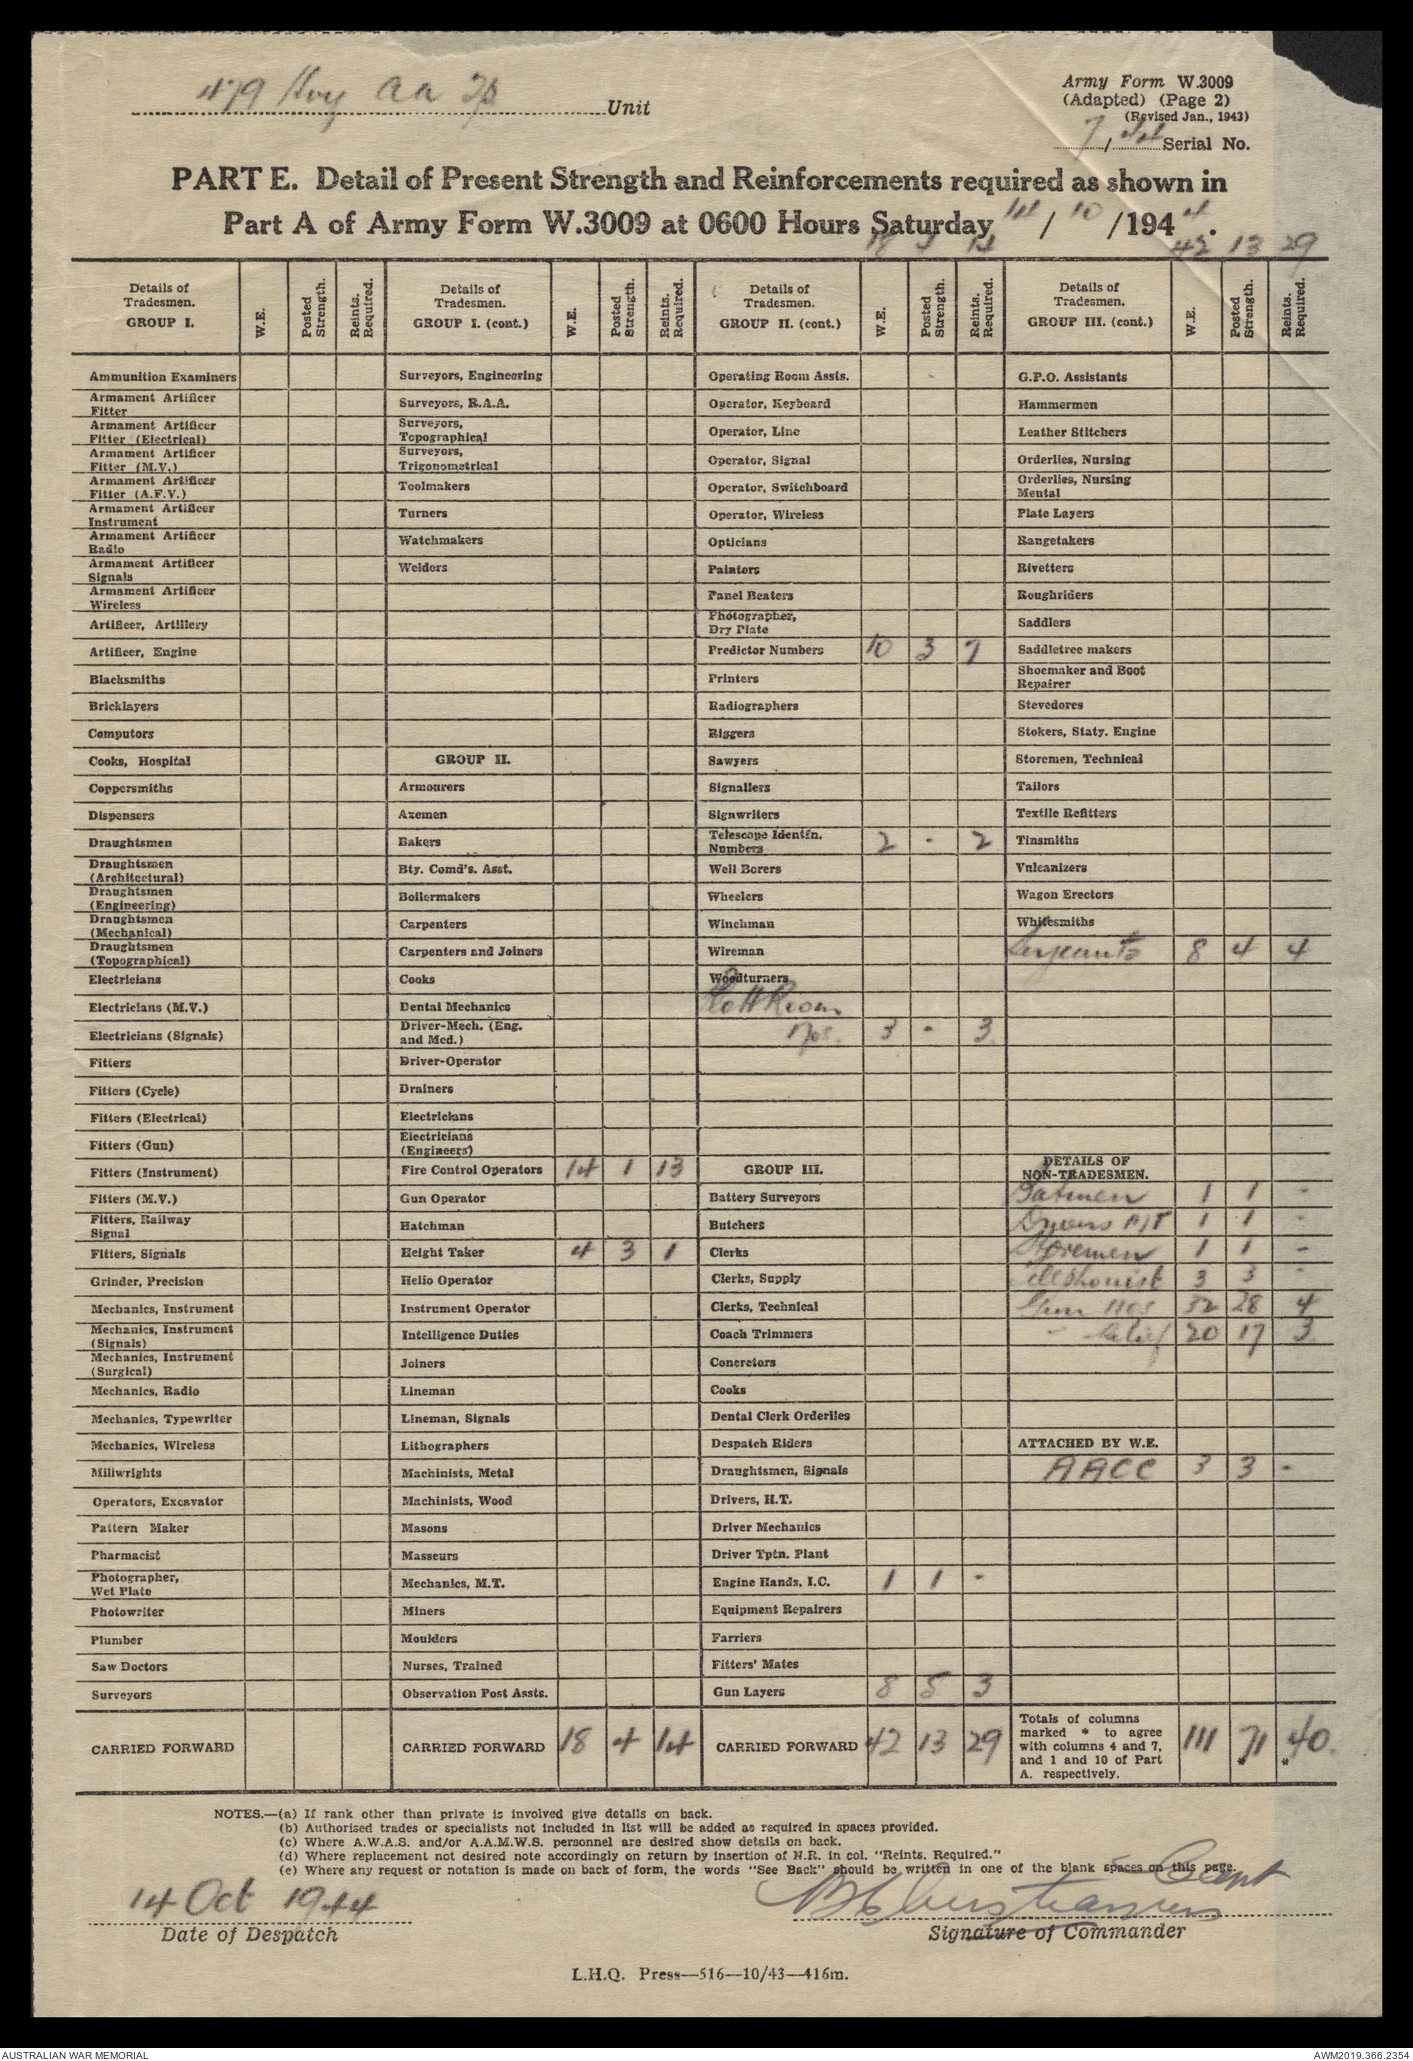 479 Hvy AA Unit
Army Form W.3009
(Adapted) (Page 2)
(Revised Jan., 1943)
7/44 Serial No.
PART E. Detail of Present Strength and Reinforcements required as shown in
Part A of Army Form W.3009 at 0600 Hours Saturday 14/10/1944.
18 4 14 42 13 29
Details of Tradesmen. GROUP I. W.E. Posted Strength. Reints. Required. Details of Tradesmen. GROUP I. (cont.) W.E. Posted Strength. Reints. Required. Details of Tradesmen. GROUP II. (cont.) W.E. Posted Strength. Reints. Required. Details of Tradesmen. GROUP III. (cont.) W.E. Posted Strength. Reints. Required.
Ammunition Examiners
Armament Artificer
Fitter
Armament Artificer
Fitter (Electrical)
Armament Artificer
Fitter (M.V.)
Armament Artificer
Fitter (A.F.V.)
Armament Artificer
Instrument
Armament Artificer
Radio
Armament Artificer
Signals
Armament Artificer
Wireless
Artificer, Artillery
Artificer, Engine
Blacksmiths
Bricklayers
Computors
Cooks, Hospital
Coppersmiths
Dispensers
Draughtsmen
Draughtsmen
(Architectural)
Draughtsmen
(Engineering)
Draughtsmen
(Mechanical)
Draughtsmen
(Topographical)
Electricians
Electricians (M.V.)
Electricians (Signals)
Fitters
Fitters (Cycle)
Fitters (Electrical)
Fitters (Gun)
Fitters (Instrument)
Fitters (M.V.)
Fitters, Railway
Signal
Fitters, Signals
Grinder, Precision
Mechanics, Instrument
Mechanics, Instrument
(Signals)
Mechanics, Instrument
(Surgical)
Mechanics, Radio
Mechanics, Typewriter
Mechanics, Wireless
Millwrights
Operators, Excavator
Pattern Maker
Pharmacist
Photographer,
Wet Plate
Photowriter
Plumber
Saw Doctors
Surveyors
CARRIED FORWARD
Surveyors, Engineering
Surveyors, R.A.A.
Surveyors,
Topographical
Surveyors,
Trigonometrical
Toolmakers
Turners
Watchmakers
Welders
GROUP II.
Armourers
Axemen
Bakers
Bty. Comd's. Asst.
Boilermakers
Carpenters
Carpenters and Joiners
Cooks
Dental Mechanics
Driver-Mech. (Eng.
and Med.)
Driver-Operator
Drainers
Electricians
Electricians
(Engineers)
Fire Control Operators 14 1 13
Gun Operator
Hatchman
Height Taker 4 3 1
Helio Operator
Instrument Operator
Intelligence Duties
Joiners
Lineman
Lineman, Signals
Lithographers
Machinists, Metal
Machinists, Wood
Masons
Masseurs
Mechanics, M.T.
Miners
Moulders
Nurses, Trained
Observation Post Assts.
CARRIED FORWARD 18 4 14
Operating Room Assts.
Operator, Keyboard
Operator, Line
Operator, Signal
Operator, Switchboard
Operator, Wireless
Opticians
Painters
Panel Beaters
Photographer,
Dry Plate
Predictor Numbers 10 3 7
Printers
Radiographers
Riggers
Sawyers
Signallers
Signwriters
Telescope Identfn.
Numbers 2 - 2
Well Borers
Wheelers
Winchman
Wireman
Woodturners
Plott Room
Nos. 3 - 3
GROUP III.
Battery Surveyors
Butchers
Clerks
Clerks, Supply
Clerks, Technical
Coach Trimmers
Concretors
Cooks
Dental Clerk Orderlies
Despatch Riders
Draughtsmen, Signals
Drivers, H.T.
Driver Mechanics
Driver Tptn. Plant
Engine Hands, I.C. 1 1 -
Equipment Repairers
Farriers
Fitters' Mates
Gun Layers 8 5 3
CARRIED FORWARD 42 13 29
G.P.O. Assistants
Hammermen
Leather Stitchers
Orderlies, Nursing
Orderlies, Nursing
Mental
Plate Layers
Rangetakers
Rivetters
Roughriders
Saddlers
Saddletree makers
Shoemaker and Boot
Repairer
Stevedores
Stokers, Staty. Engine
Storemen, Technical
Tailors
Textile Refitters
Tinsmiths
Vulcanizers
Wagon Erectors
Whitesmiths
Sergeants 8 4 4
DETAILS OF
NON-TRADESMEN.
Batmen 1 1 -
Drivers 1 1 -
Storemen 1 1 -
Telephonist 3 3 -
Gun Nos 32 28 4
- Relief 20 17 3
ATTACHED BY W.E.
AACC 3 3 -
Totals of columns
marked * to agree
with columns 4 and 7,
and 1 and 10 of Part
A. respectively. 111 *71 *40.
NOTES.—(a) If rank other than private is involved give details on back.
(b) Authorised trades or specialists not included in list will be added as required in spaces provided.
(c) Where A.W.A.S. and/or A.A.M.W.S. personnel are desired show details on back.
(d) Where replacement not desired note accordingly on return by insertion of N.R. in col. "Reints. Required."
(e) Where any request or notation is made on back of form, the words "See Back" should be written in one of the blank spaces on this page.
14 Oct 1944
Capt
Date of Despatch
Signature of Commander
L.H.Q. Press—516—10/43—416m.
AUSTRALIAN WAR MEMORIAL
AWM2019.366.2354